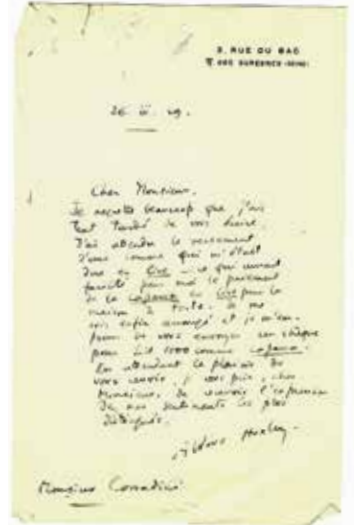 3, RUE DU BAC
SURESNES (SEINE)
26. iii. 29.
Cher Monsieur,
Je regrette beaucoup que j'ai
tant tardé de vous écrire.
J'ai attendu le versement
d'une somme qui m'était
due en Lire - ce qui aurait
facilité pour moi le paiement
de la caparra en Lire pour la
maison à Forte. Je me
suis enfin arrangé et je m'em-
presse de vous envoyer un chèque
pour Lit 1000 comme caparra.
En attendant le plaisir de
vous revoir, je vous prie, cher
Monsieur, de recevoir l'expression
de mes sentiments les plus
distingués.
Aldous Huxley
Monsieur Corradini